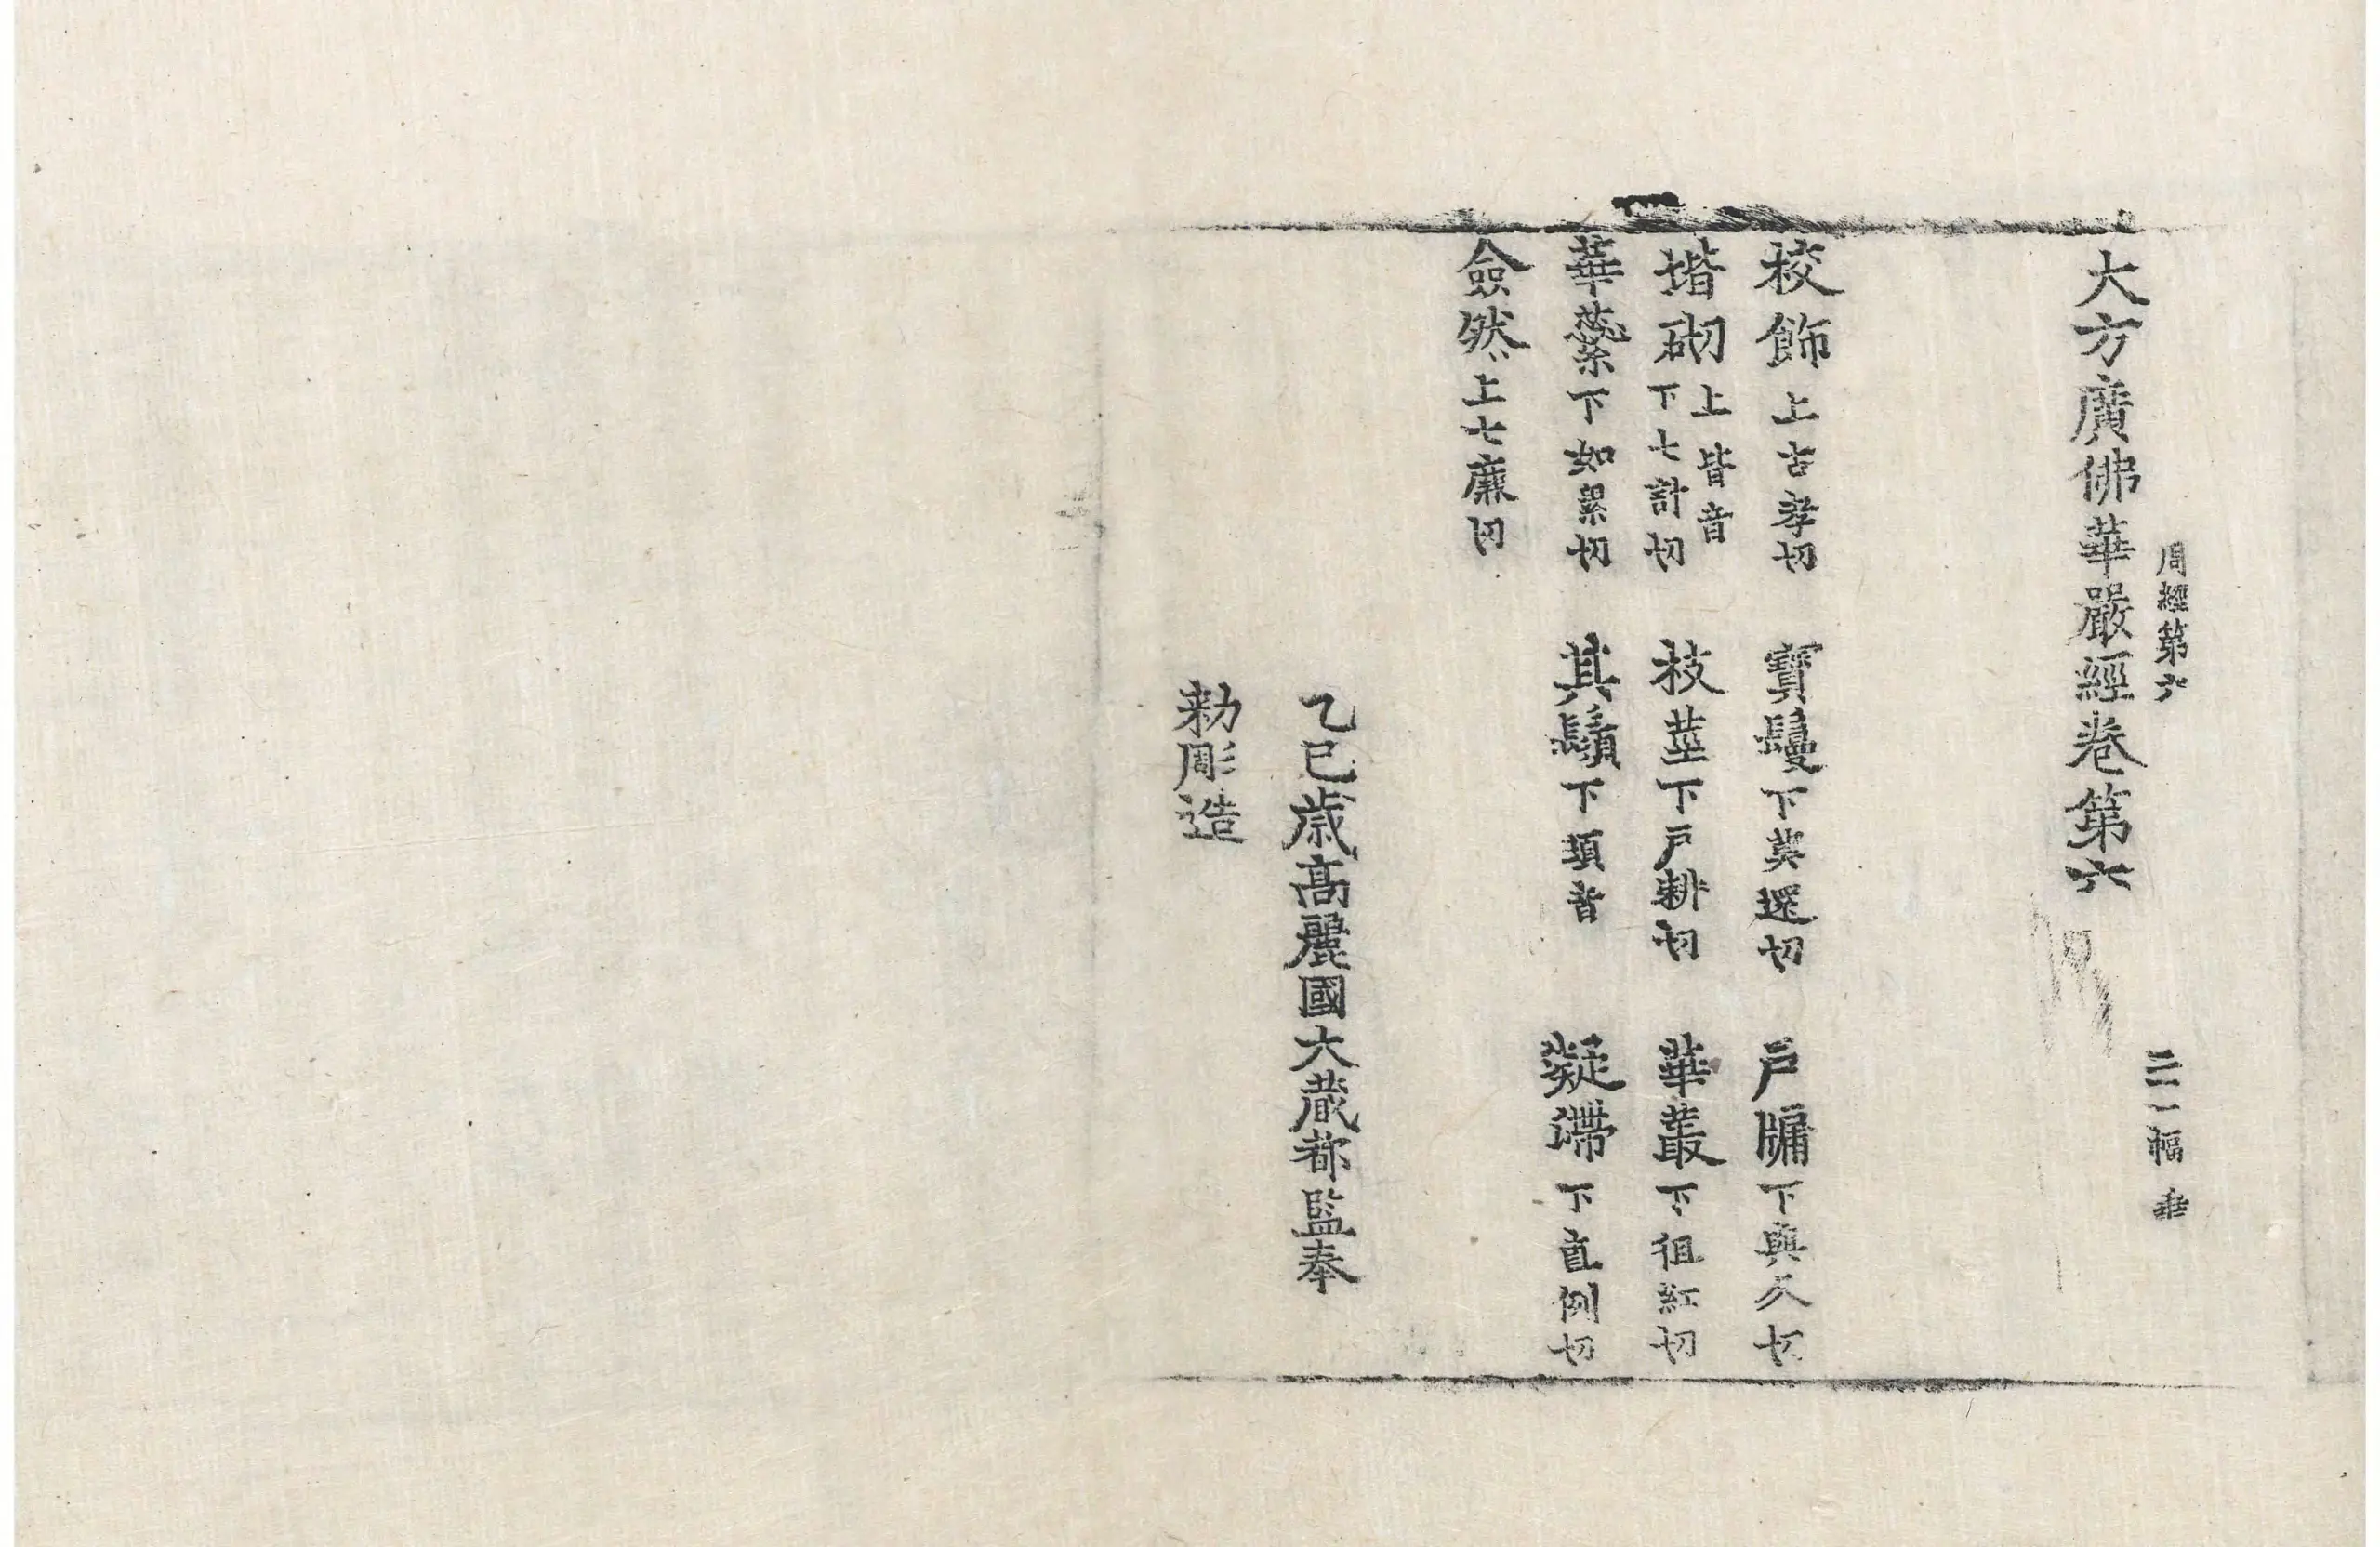 周經第六 二十一幅 垂
大方廣佛華嚴經卷第六
校飾上古孝切 寶鬘下莫還切 戶牖下與久切
堦砌上皆音下七計切 枝莖下戶耕切 華叢下徂紅切
華蘂下如累切 其鬚下須音 凝滯下直例切
僉然上七廉切
乙巳歲高麗國大藏都監奉
勅彫造